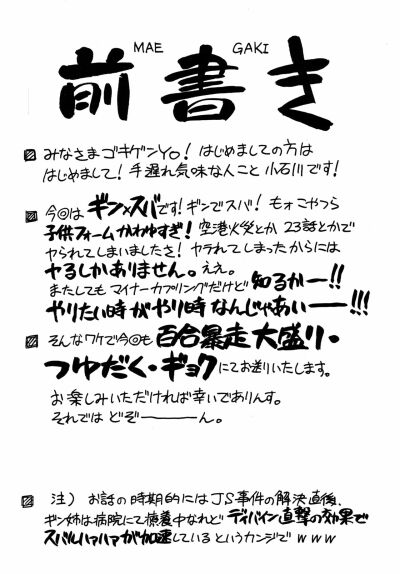 MAE GAKI
前書き
みなさまゴキゲンYO! はじめましての方は
はじめまして! 手遅れ気味な人こと小石川です!
今回はギン×スバです! ギンでスバ! モォこやつら
子供フォームかわゆすぎ! 空港火災とか23話とかで
ヤられてしまいましたさ! ヤラれてしまったからには
ヤるしかありません。ええ。
またしてもマイナーカプリングだけど知るかー!!
やりたい時がやり時なんじゃあぃー!!!
そんなワケで今回も百合暴走大盛り・
つゆだく・ギョクにてお送りいたします。
お楽しみいただければ幸いでありんす。
それでは どぞ――――ん。
注) お話の時期的にはJS事件の解決直後、
ギン姉は病院にて療養中なれどディバイン直撃の効果で
スバルハァハァが加速しているというカンジでwww